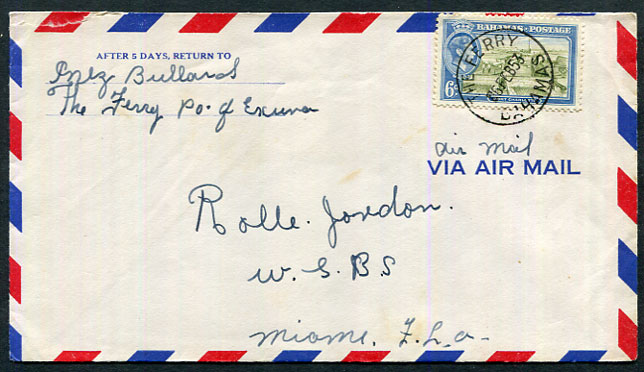 AFTER 5 DAYS, RETURN TO
Bullard
The Ferry Po. of Exuma
BAHAMAS POSTAGE
6
THE FERRY
BAHAMAS
air mail
VIA AIR MAIL
Rolle. Jordon.
W. G. B S
Miame. F.L.a.